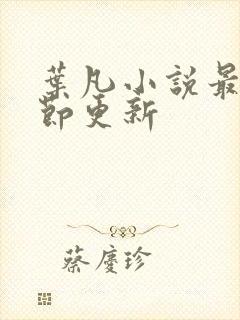 葉凡小說最
節更新
蔡慶珍